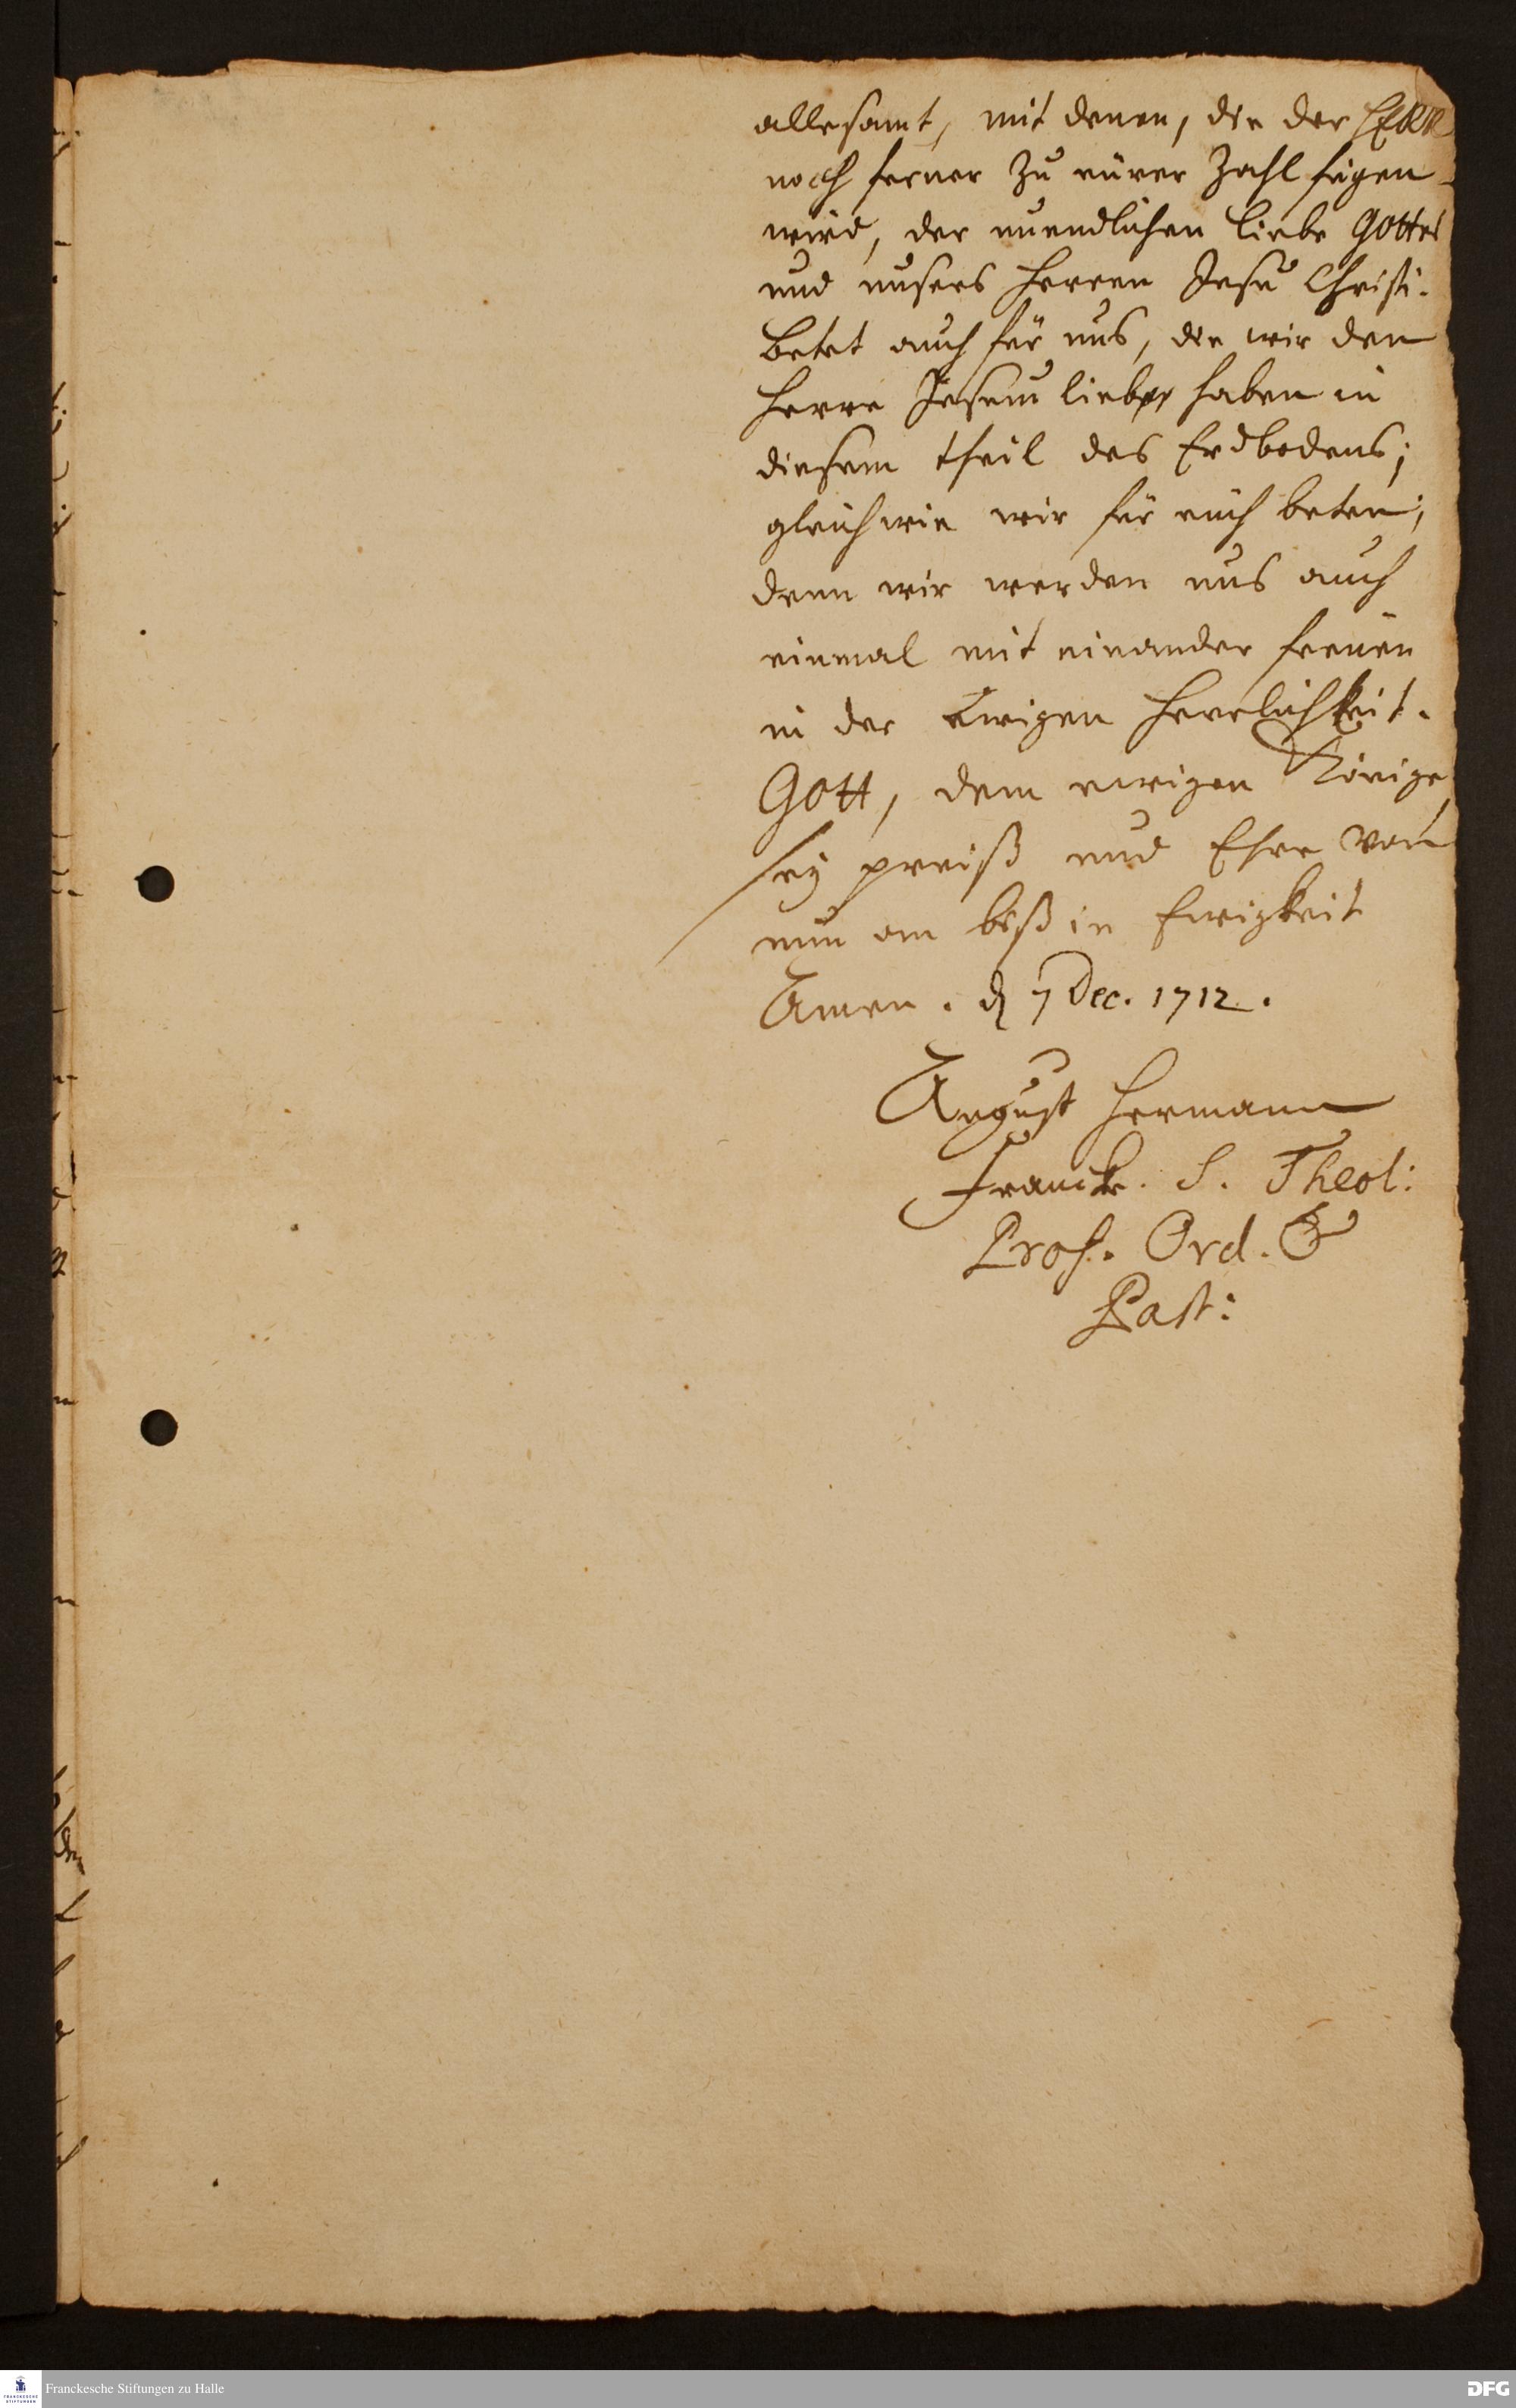 allesamt, mit denen, die der HERR
noch ferner zu eürer Zahl fügen
wird, der unendlichen Liebe Gottes
und unsers Herren Jesu Christi.
Betet auch für uns, die wir den
Herrn Jesum lieb haben in
diesem theil des Erdbodens;
gleichwie wir für euch beten;
denn wir werden uns auch
einmal mit einander freuen
in der Ewigen Herrlichkeit.
Gott, dem ewigen Könige
sey preiß und Ehre von
nun an biß in Ewigkeit
Amen. d 7 Dec. 1712.
August Hermann
Francke. S. Theol:
Prof. Ord. &
Past:
Franckesche Stiftungen zu Halle
DFG